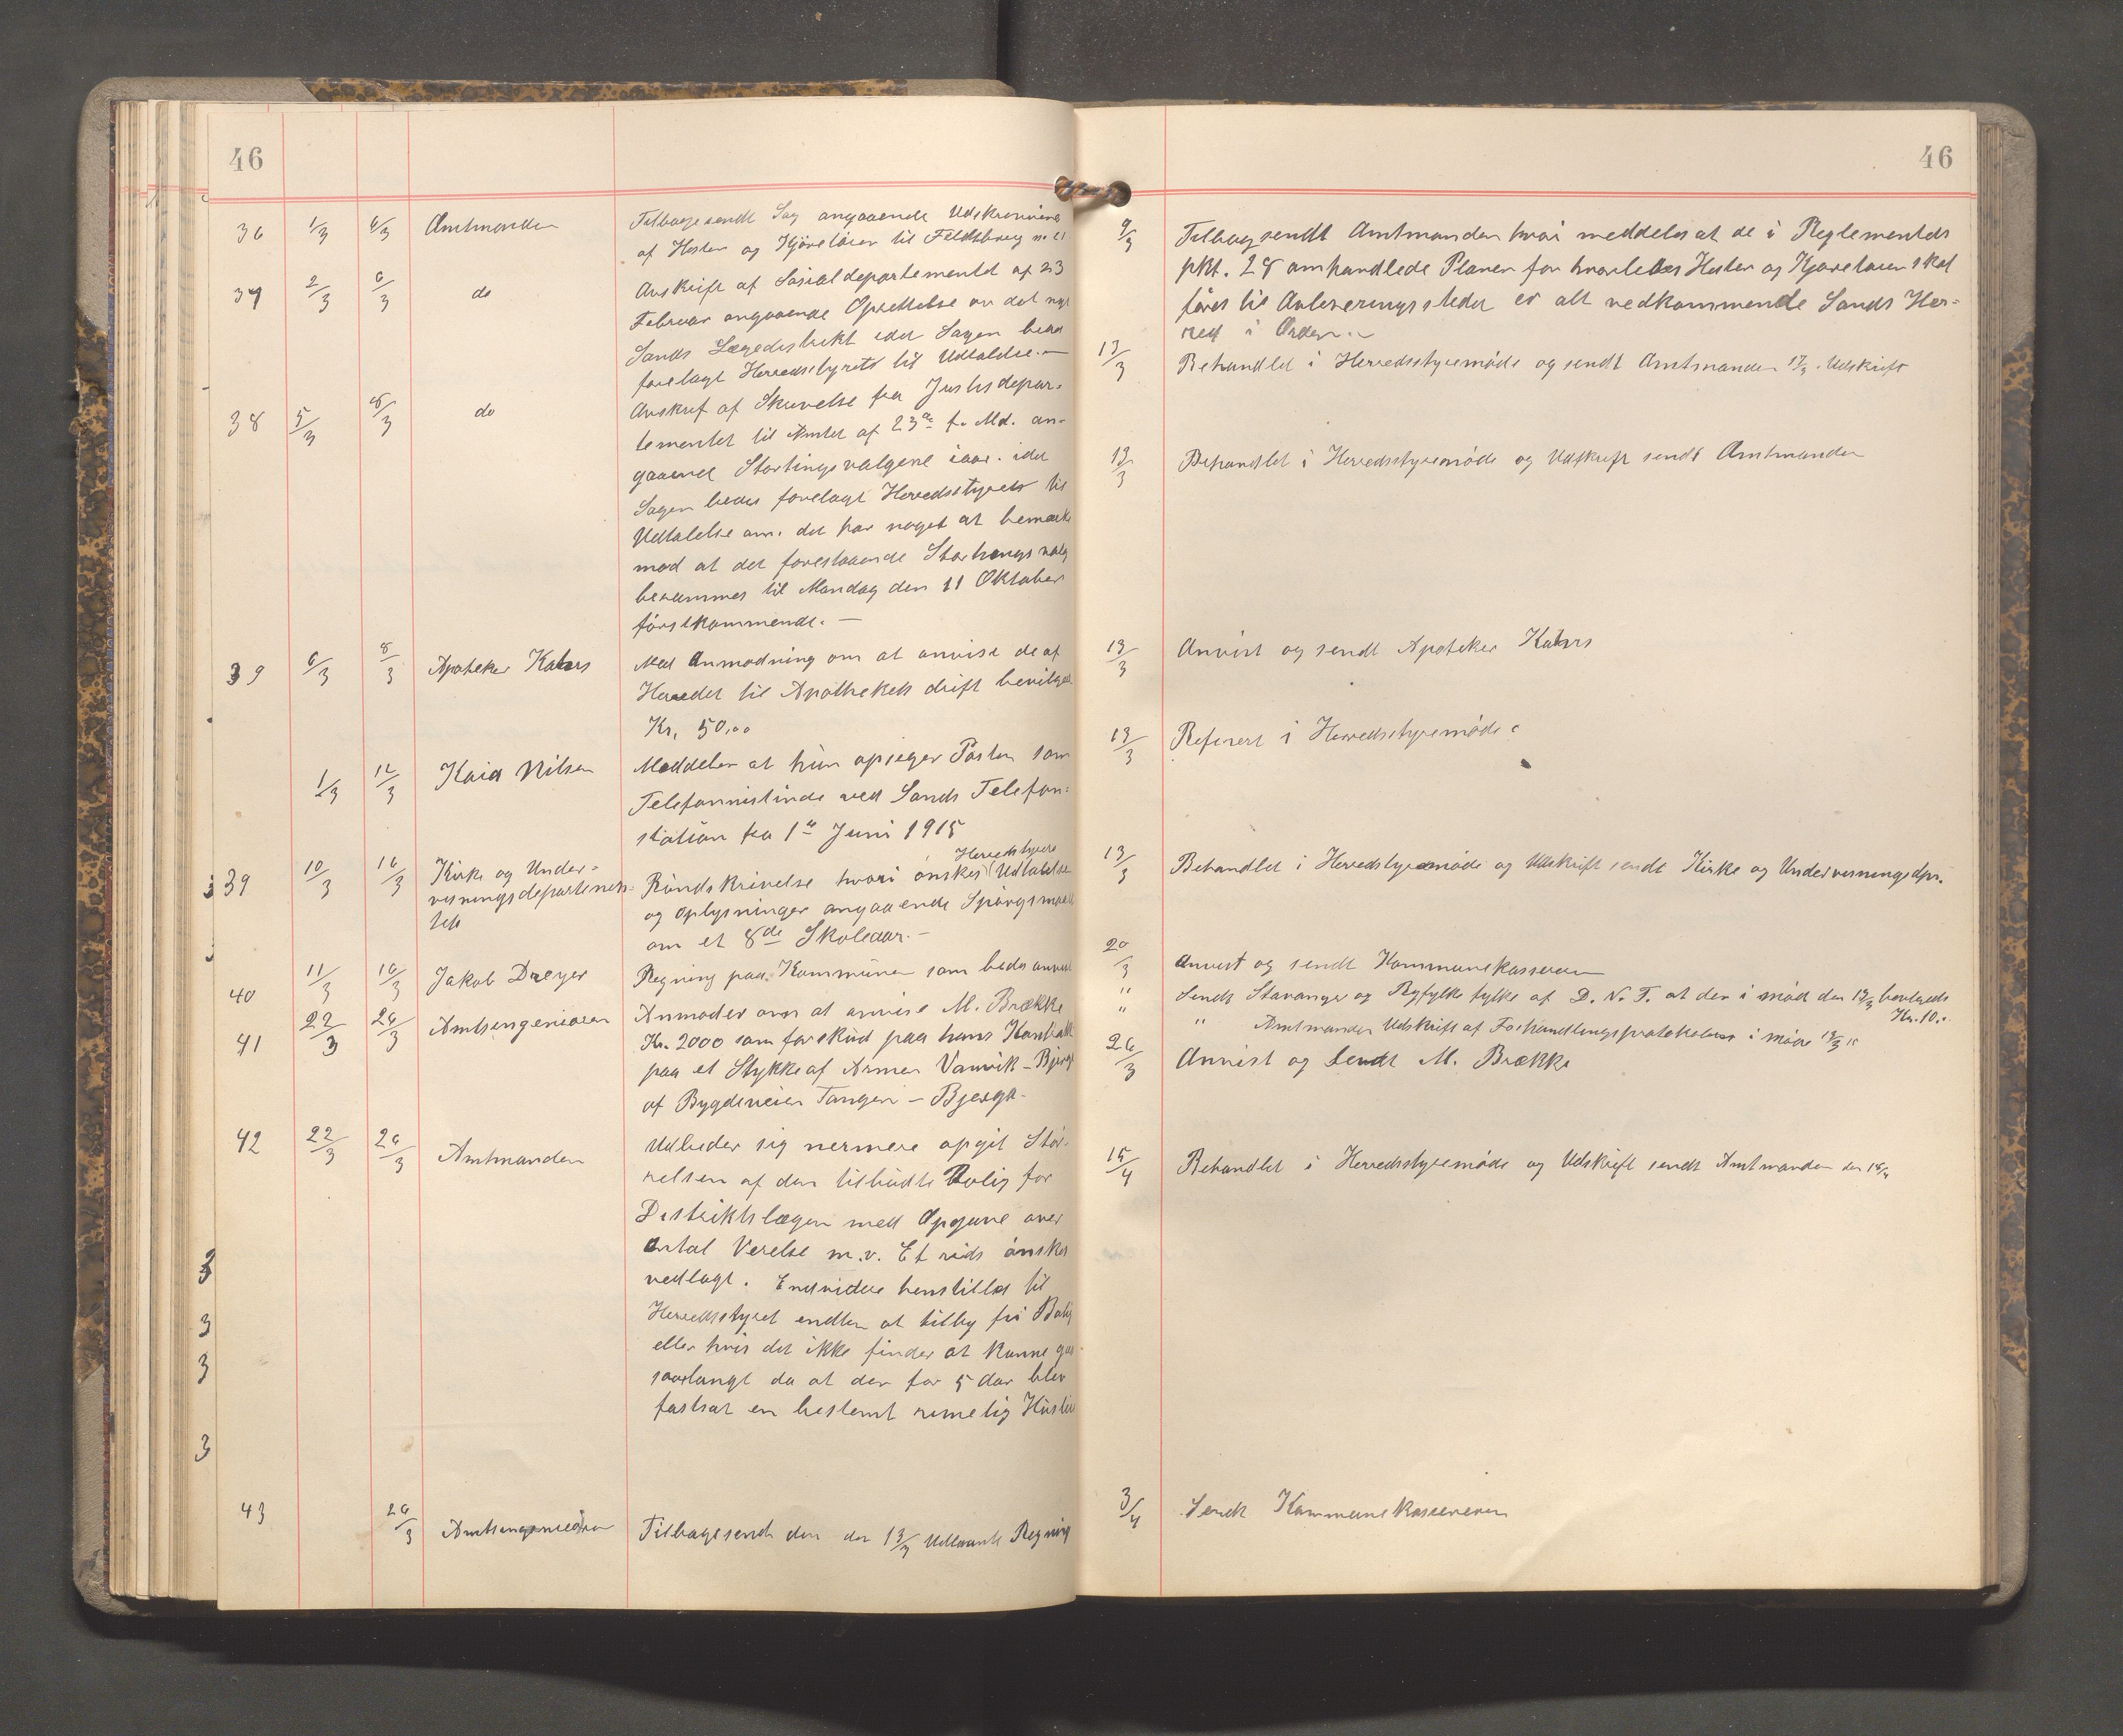 46
36 1/3 6/3 Amtmanden Tilbagesendt Sag angaaende Udskrivning
af Hester og Kjøretøier til Feldtbrug m. v.
37 2/3 6/3 do Avskrift af Socialdepartementet af 23
Februar angaaende Oprettelse av det nye
Sands Lægedistrikt idet Sagen bedes
forelagt Herredsstyrets til Udtalelse.—
38 5/3 8/3 do Avskrift af Skrivelse fra Justisdepar-
tementet til Amtet af 23de f. Md. an-
gaaende Stortingsvalgene iaar. idet
Sagen bedes forelagt Herredsstyrets til
Udtalelse om. det har noget at bemærke
mod at det forestaaende Stortingsvalg
berammes til Mandag den 11 Oktober
førstkommende.—
39 6/3 8/3 Apoteker Kahrs Med Anmodning om at anvise de af
Herredet til Apothekets drift bevilgede
Kr. 50,00
1/3 12/3 Kaia Nilsen Meddeler at hun opsiger Posten som
Telefonistinde ved Sands Telefon-
station fra 1ste Juni 1915
39 10/3 16/3 Kirke og Under-
visningsdepartemen-
tet Rundskrivelse hvori ønskes Herredsstyre Udtalelse
og oplysninger angaaende Spørgsmaalet
om et 8de Skoleaar.—
40 11/3 16/3 Jakob Dreyer Regning paa Kommunen som bedes anvist
41 22/3 26/3 Amtsingeniøren Anmoder om at anvise M. Brække
Kr. 2000 som forskud paa hans Kontrakt
paa et Stykke af Armen Vanvik – Bjerga
af Bygdeveien Tangen – Bjerga.
42 22/3 26/3 Amtmanden Udbeder sig nermere opgit Stør-
relsen af den tilbudte Bolig for
Distriktslægen med Opgave over
Antal Verelse m.v. Et rids ønskes
vedlagt. Endvidere henstilles til
Herredsstyret endten at tilby fri Bolig
eller hvis det ikke finder at kunne gaa
saalangt da at der for 5 Aar blev
fastsat en bestemt rimelig Husleie
43 26/3 Amtsingeniøren Tilbagesendt den den 13/3 Regning
46
9/3 Tilbagsendt Amtmanden hvor meddeles at de i Reglementets
pkt. 28 omhandlede Planer for hvorledes Hester og Kjøretøier skal
føres til Avleveringsstedet er alt vedkommende Sands Her-
red i Orden.—
13/3 Behandlet i Herredsstyremøde og sendt Amtmanden 17/3. Udskrift
13/3 Behandlet i Herredsstyremøde og Udskrift sendt Amtmanden
13/3 Anvist og sendt Apoteker Kahrs
13/3 Referert i Herredsstyremøde.
13/3 Behandlet i Herredsstyremøde og Udskrift sendt Kirke og Undervisningsdpr.
20/3 Anvist og sendt Kommunekassereren
" Sendt Stavanger og Ryfylke fylke af D. N. T. at der i mød den 13/3 bevilgeds
Kr. 10.-
" " Amtmanden Udskrift af Forhandlingsprotokolen i møde 13/3 15
26/3 Anvist og sendt M. Brække
15/4 Behandlet i Herredsstyremøde og Udskrift sendt Amtmanden den 18/4
3/4 Sendt Kommunekassereren